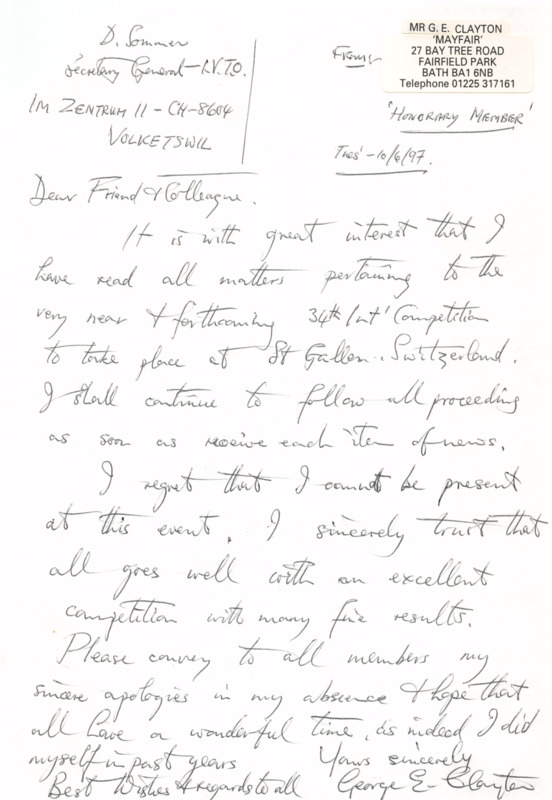 D. Sommer
Secretary General - I.V.T.O.
IM ZENTRUM 11 - CH-8604
VOLKETSWIL
From:-
MR G. E. CLAYTON
'MAYFAIR'
27 BAY TREE ROAD
FAIRFIELD PARK
BATH BA1 6NB
Telephone 01225 317161
'HONORARY MEMBER'
Tues' - 10/6/97.
Dear Friend & Colleague.
It is with great interest that I
have read all matters pertaining to the
very near & forthcoming 34th Int' Competition
to take place at St Gallen. Switzerland.
I shall continue to follow all proceeding
as soon as receive each item of news.
I regret that I cannot be present
at this event. I sincerely trust that
all goes well with an excellent
competition with many fine results.
Please convey to all members my
sincere apologies in my absence & hope that
all have a wonderful time, as indeed I did
myself in past years Yours sincerely
Best Wishes & regards to all George E. Clayton